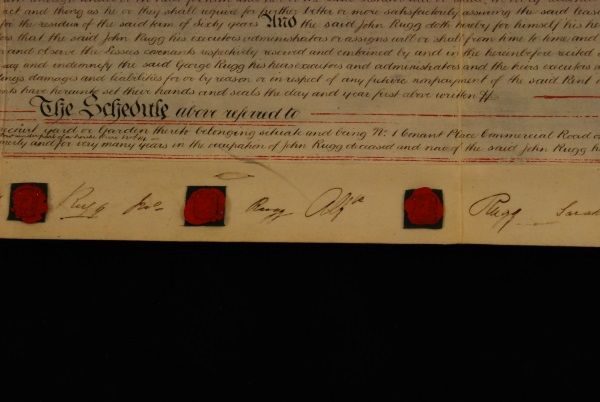 act and things as he or they shall require for further better or more satisfactorily assuring the said
for the residue of the said term of Sixty years And the said John Rugg doth hereby for himself his
that the said John Rugg his executors administrators or assigns will or shall from time to time and
and observe the Lessees covenants respectively reserved and contained by and in the hereinbefore recited
and indemnify the said George Rugg his heirs executors and administrators and the heirs executors
damages and liabilities for or by reason or in respect of any future nonpayment of the said Rent
have hereunto set their hands and seals the day and year first above written
The Schedule above referred to
yard or Garden thereto belonging situate and being No. 1 Conant Place Commercial Road
and for very many years in the occupation of John Rugg deceased and now of the said John Rugg
Rugg Rugg Rugg Sarah